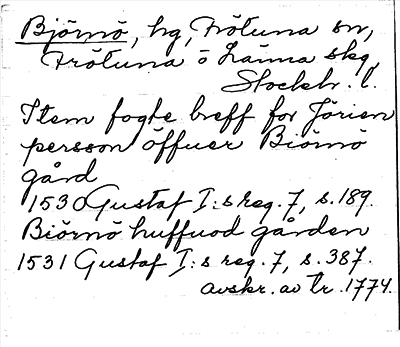 Björnö, hg, Frötuna sn,
Frötuna o Länna skg,
Stockh. l.
Item fogte breff for Jörien
persson öffuer Biörnö
gård
1530 Gustaf I:s reg. 7, s. 189.
Biörnö huffuod gården
1531 Gustaf I:s reg. 7, s. 387.
avskr. av tr. 1774.